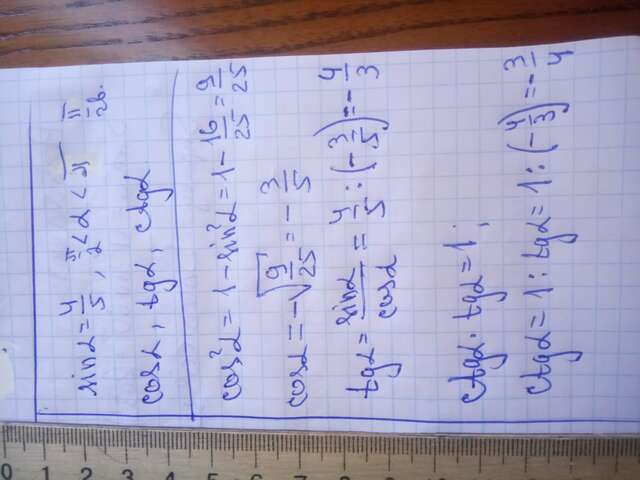 sinα = 4/5, π/2 < α < π π/2 в.
cosα, tgα, ctgα
cos²α = 1 - sin²α = 1 - 16/25 = 9/25
cosα = -√9/25 = -3/5
tgα = sinα/cosα = 4/5 : (-3/5) = -4/3
ctgα · tgα = 1;
ctgα = 1 : tgα = 1 : (-4/3) = -3/4
0 1 2 3 4 5 6 7 8 9